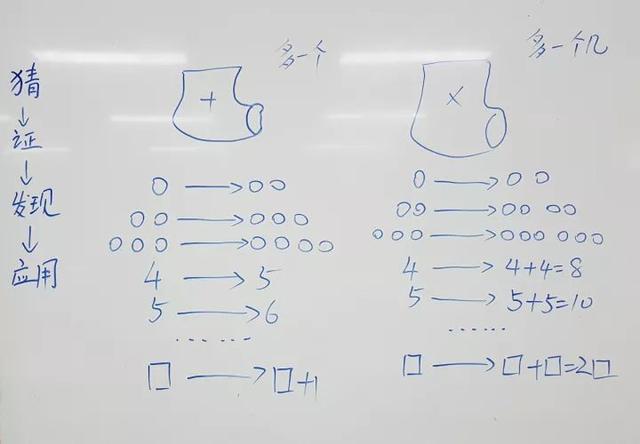 猜
↓
证
↓
发现
↓
应用
多一个
+
○ → ○○
○○ → ○○○
○○○ → ○○○○
4 → 5
5 → 6
······
□ → □+1
多一个几
×
○ → ○ ○
○○ → ○○ ○○
○○○ → ○○○ ○○○
4 → 4+4=8
5 → 5+5=10
······
□ → □+□=2□